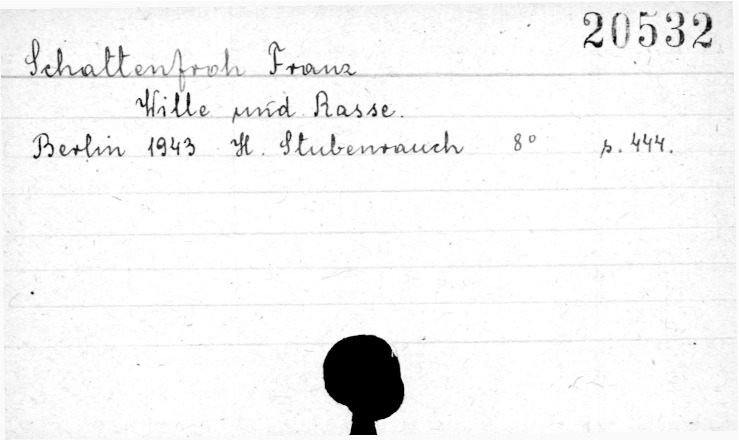 20532
Schattenfroh Franz
Wille und Rasse.
Berlin 1943 H. Stubenrauch 8° p. 444.